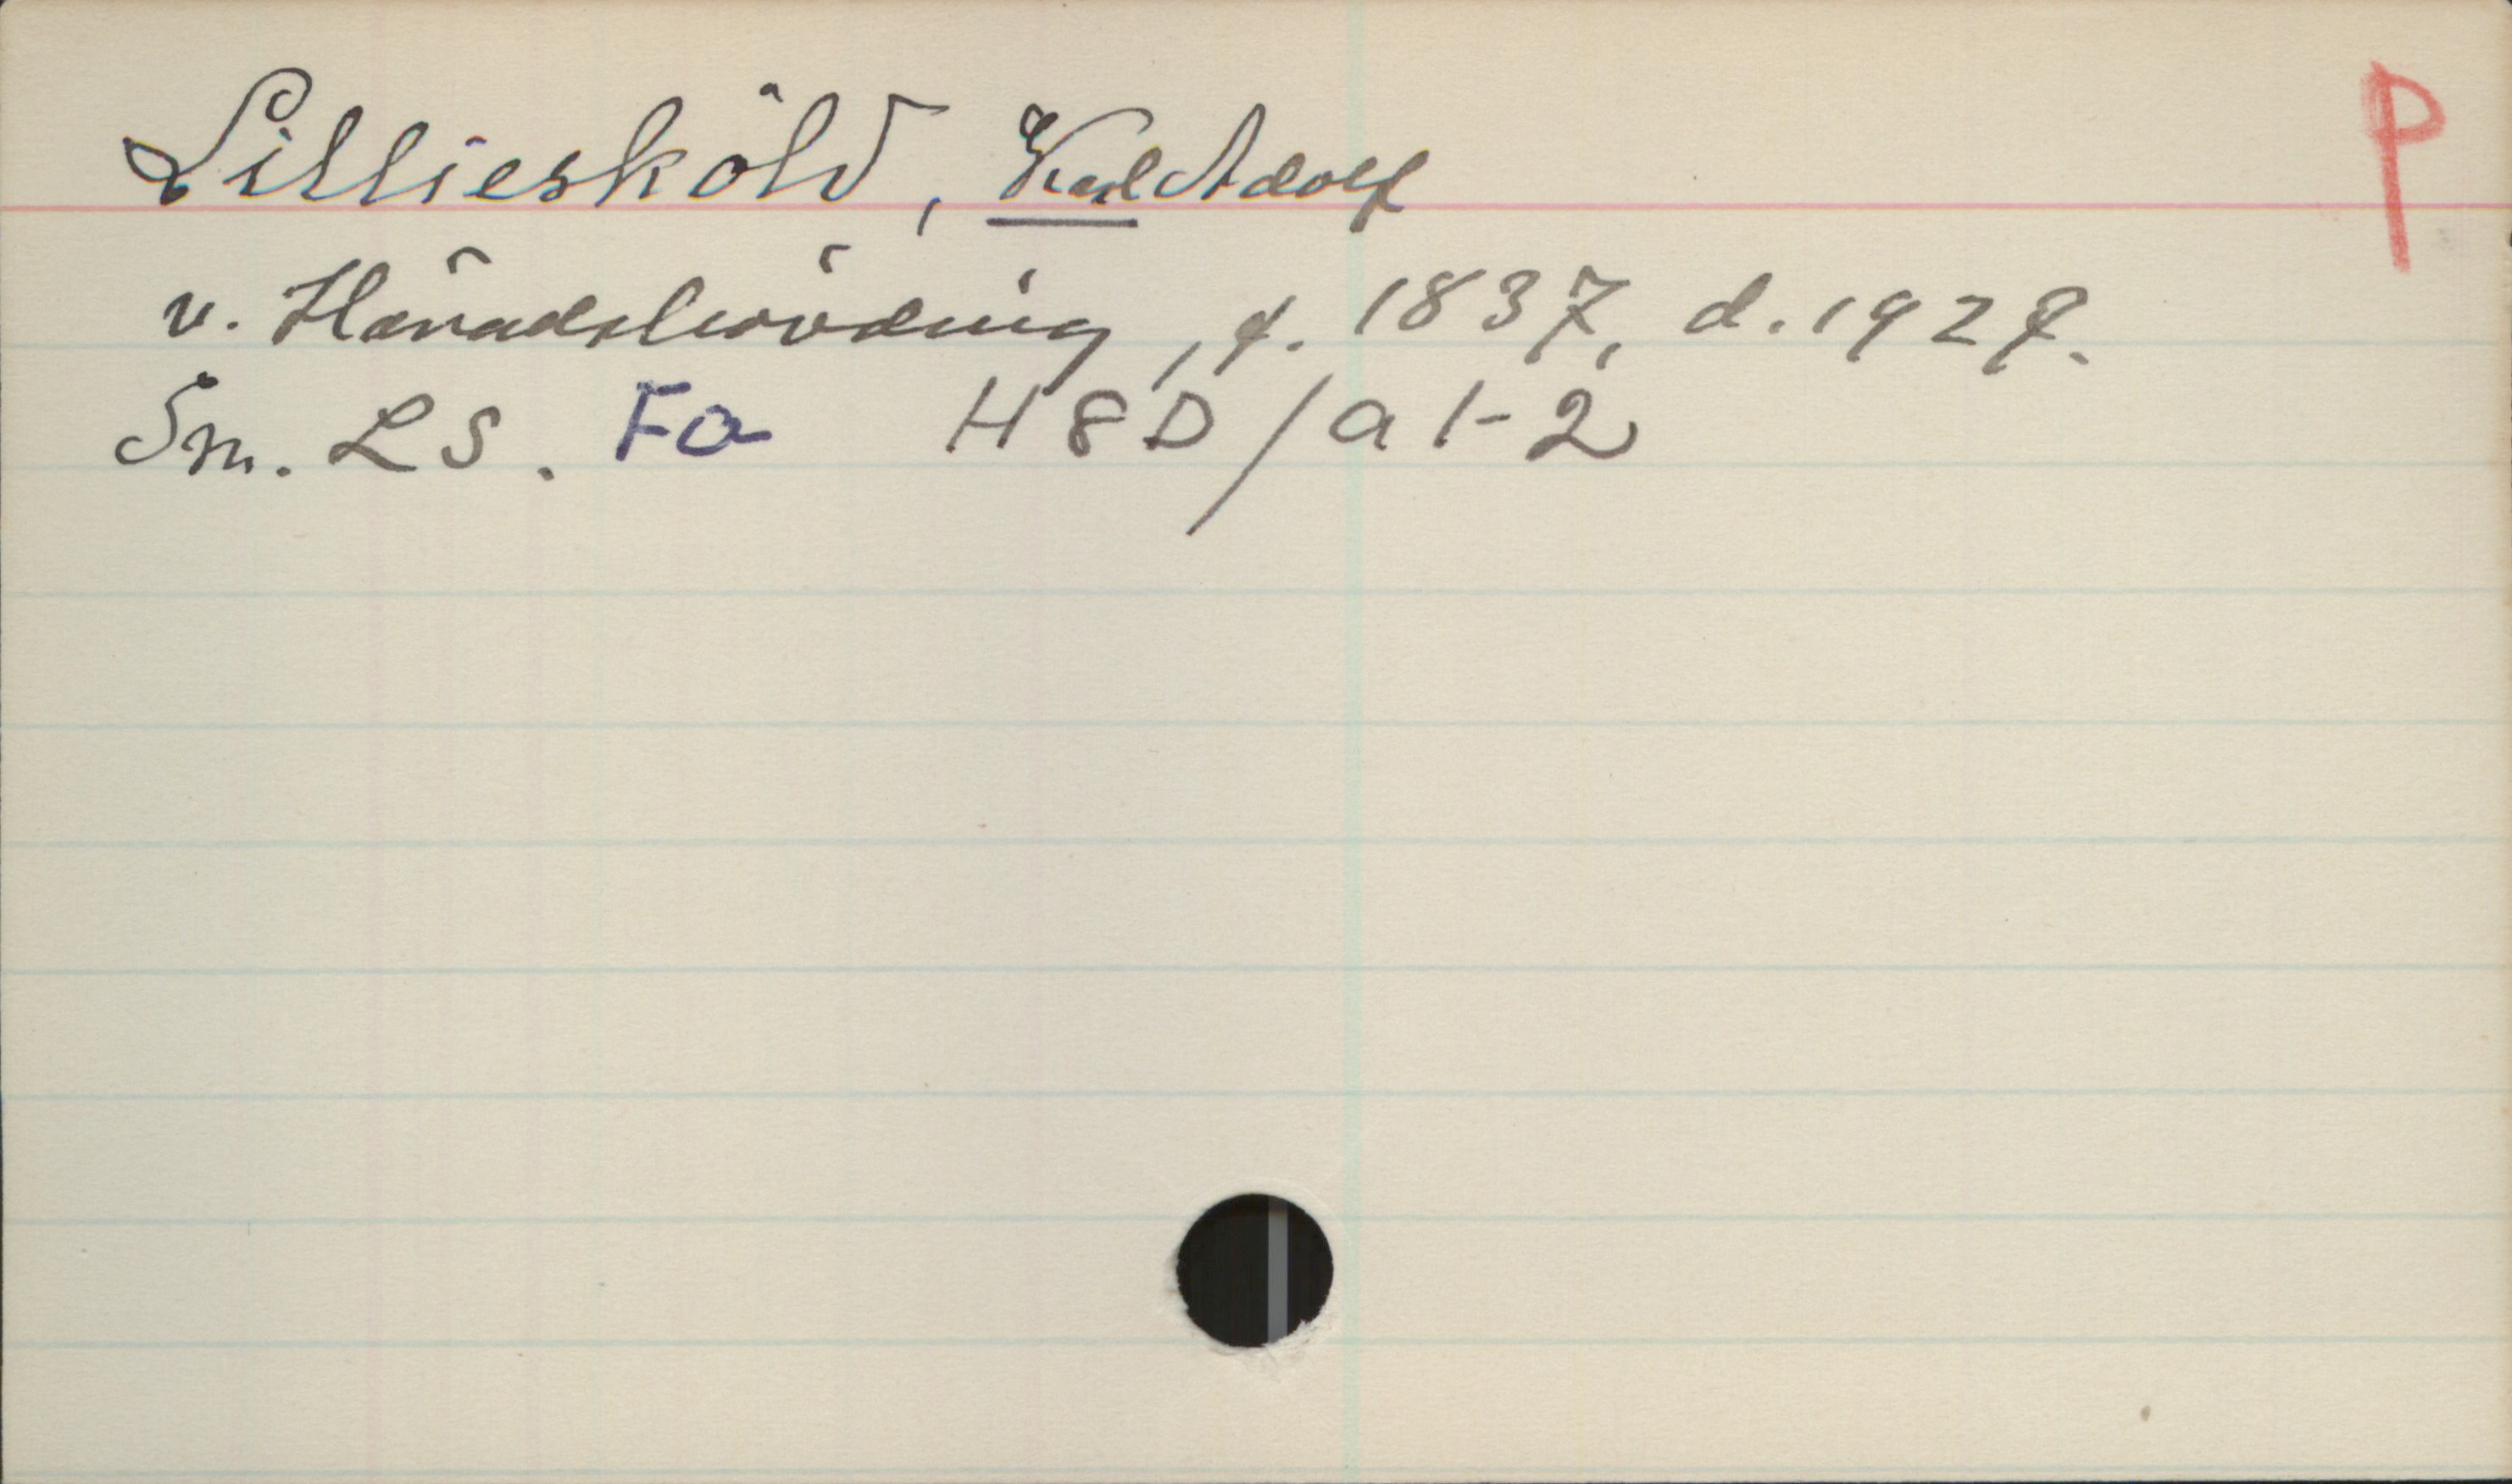 Lilliesköld, Karl Adolf P
v. Häradshövding, f. 1837, d. 1927.
Sm. LS. Fa H8D/a 1-2